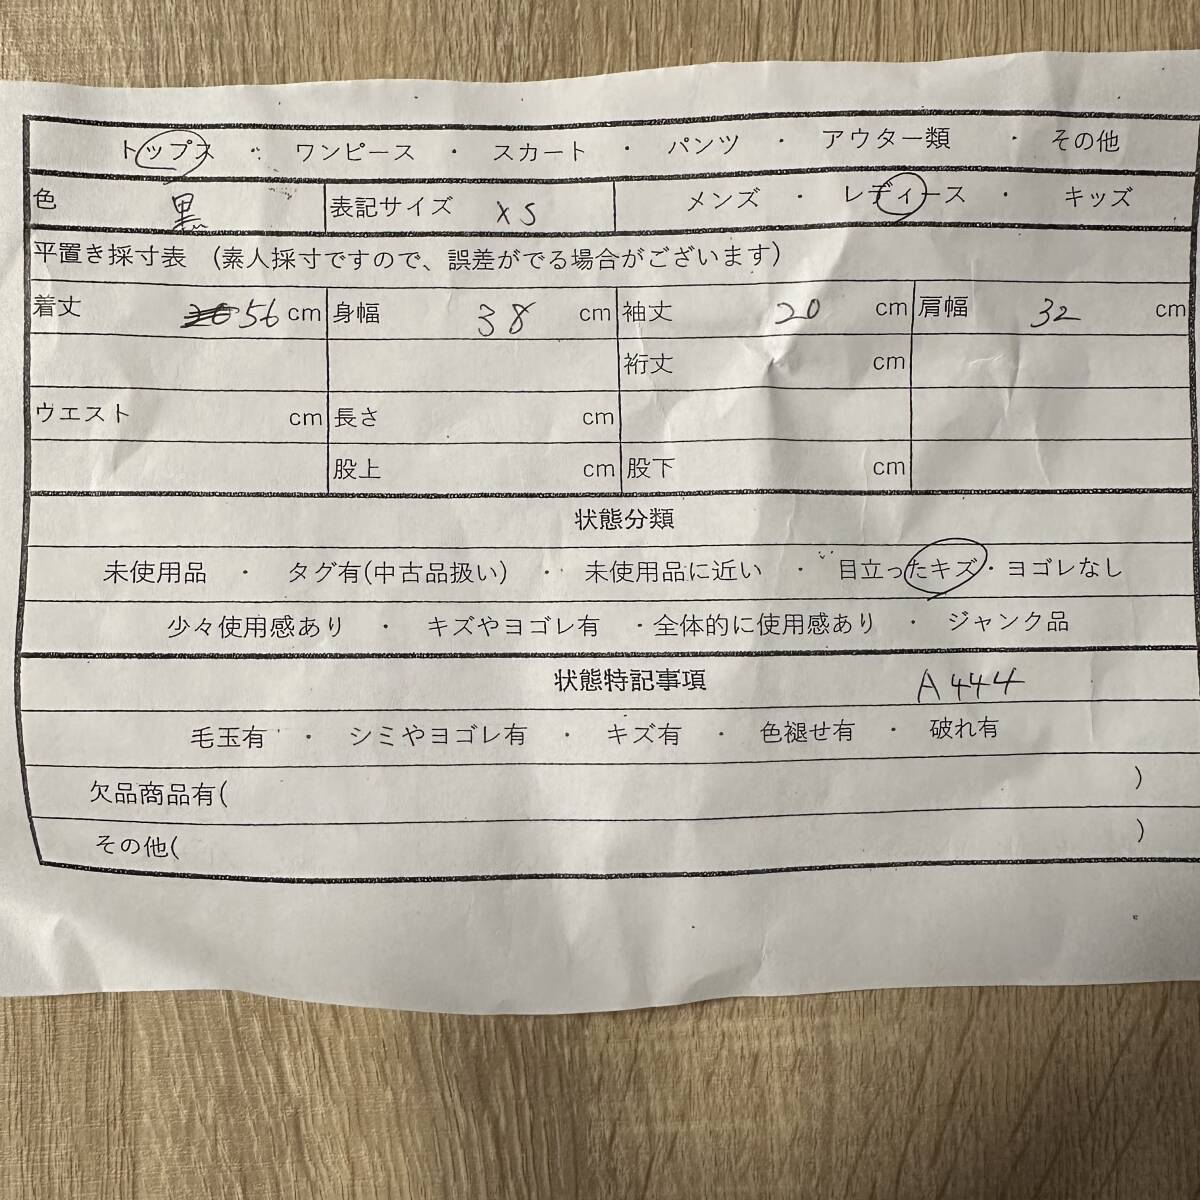 トップス ・ ワンピース ・ スカート ・ パンツ ・ アウター類 ・ その他
色 黒 表記サイズ XS メンズ ・ レディース ・ キッズ
平置き採寸表 (素人採寸ですので、誤差がでる場合がございます)
着丈 56 cm 身幅 38 cm 袖丈 20 cm 肩幅 32 cm
裄丈 cm
ウエスト cm 長さ cm
股上 cm 股下 cm
状態分類
未使用品 ・ タグ有(中古品扱い) ・ 未使用品に近い ・ 目立ったキズ・ヨゴレなし
少々使用感あり ・ キズやヨゴレ有 ・全体的に使用感あり ・ ジャンク品
状態特記事項 A444
毛玉有 ・ シミやヨゴレ有 ・ キズ有 ・ 色褪せ有 ・ 破れ有
欠品商品有( )
その他( )